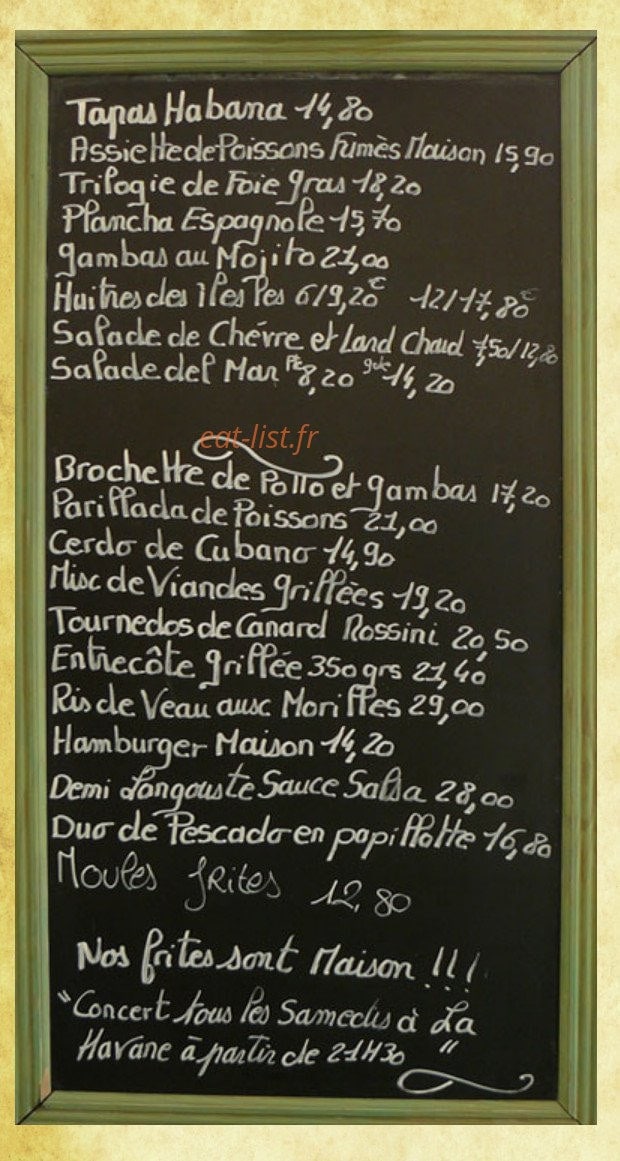 Tapas Habana 14,80
Assiette de Poissons Fumès Maison 15,90
Trilogie de Foie gras 18,20
Plancha Espagnole 15,70
gambas au Mojito 21,00
Huitres des îles Pes 6/9,20€ 12/17,80€
Salade de Chévre et Lard Chaud 7,50/12,80
Salade del Mar Pte 8,20 gde 14,20
eat-list.fr
Brochette de Pollo et gambas 17,20
Parillada de Poissons 21,00
Cerdo de Cubano 14,90
Misc de Viandes grillèes 19,20
Tournedos de Canard Rossini 20,50
Entrecôte grillée 350 grs 21,40
Ris de Veau aux Morilles 29,00
Hamburger Maison 14,20
Demi Langouste Sauce Salsa 28,00
Duo de Pescado en papillotte 16,80
Moules frites 12,80
Nos frites sont Maison !!!
"Concert tous les Samedis à La
Havane à partir de 21H30"